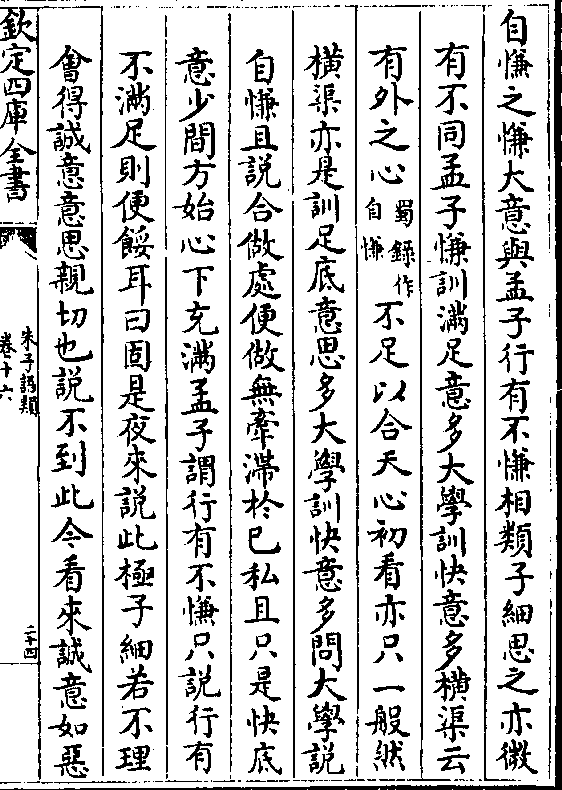 自慊之慊大意與孟子行有不慊相類子細思之亦微
有不同孟子慊訓滿足意多大學訓快意多橫渠云
有外之心蜀錄作自慊不足以合天心初看亦只一般然
橫渠亦是訓足底意思多大學訓快意多問大學説
自慊且説合做處便做無牽滯於已私且只是快底
意少間方始心下充滿孟子謂行有不慊只説行有
不滿足則便餒耳曰固是夜來説此極子細若不理
㑹得誠意意思親切也説不到此今看來誠意如惡
欽定四庫全書
朱子語類
卷十六
二十四